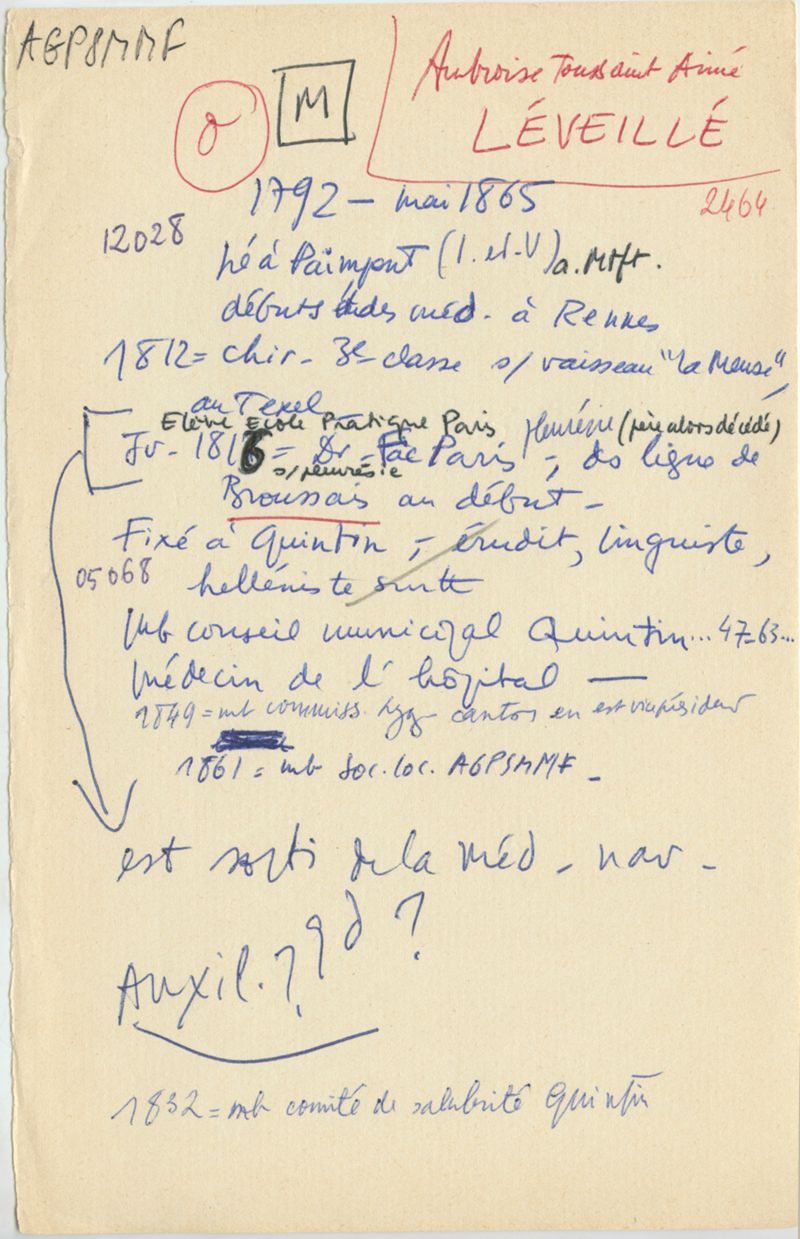 AGPSMMF
Ambroise Toussaint Aimé
LÉVEILLÉ
M
2464
1792 – mai 1865
12028
né à Paimpont (I. et-V) a. Mtft.
débuts études méd. à Rennes
1812 = chir. 3e classe s/ vaisseau "la Meuse",
au Texel
Elève Ecole Pratique Paris pleurésie (père alors décédé)
Jv - 1816 = Dr - Fac Paris -, ds ligne de
s/pleurésie
Broussais au début -
Fixé à Quintin ,- érudit, linguiste,
05068
helléniste surtt
mb conseil municipal Quintin... 47-63...
Médecin de l'hôpital —
1849 = mb commiss. hyg- canton en est viceprésident
1861 = mb Soc. loc. AGPSMMF -
est sorti de la méd - nav -
Auxil. ? qd ?
1832 = mb comité de salubrité Quintin